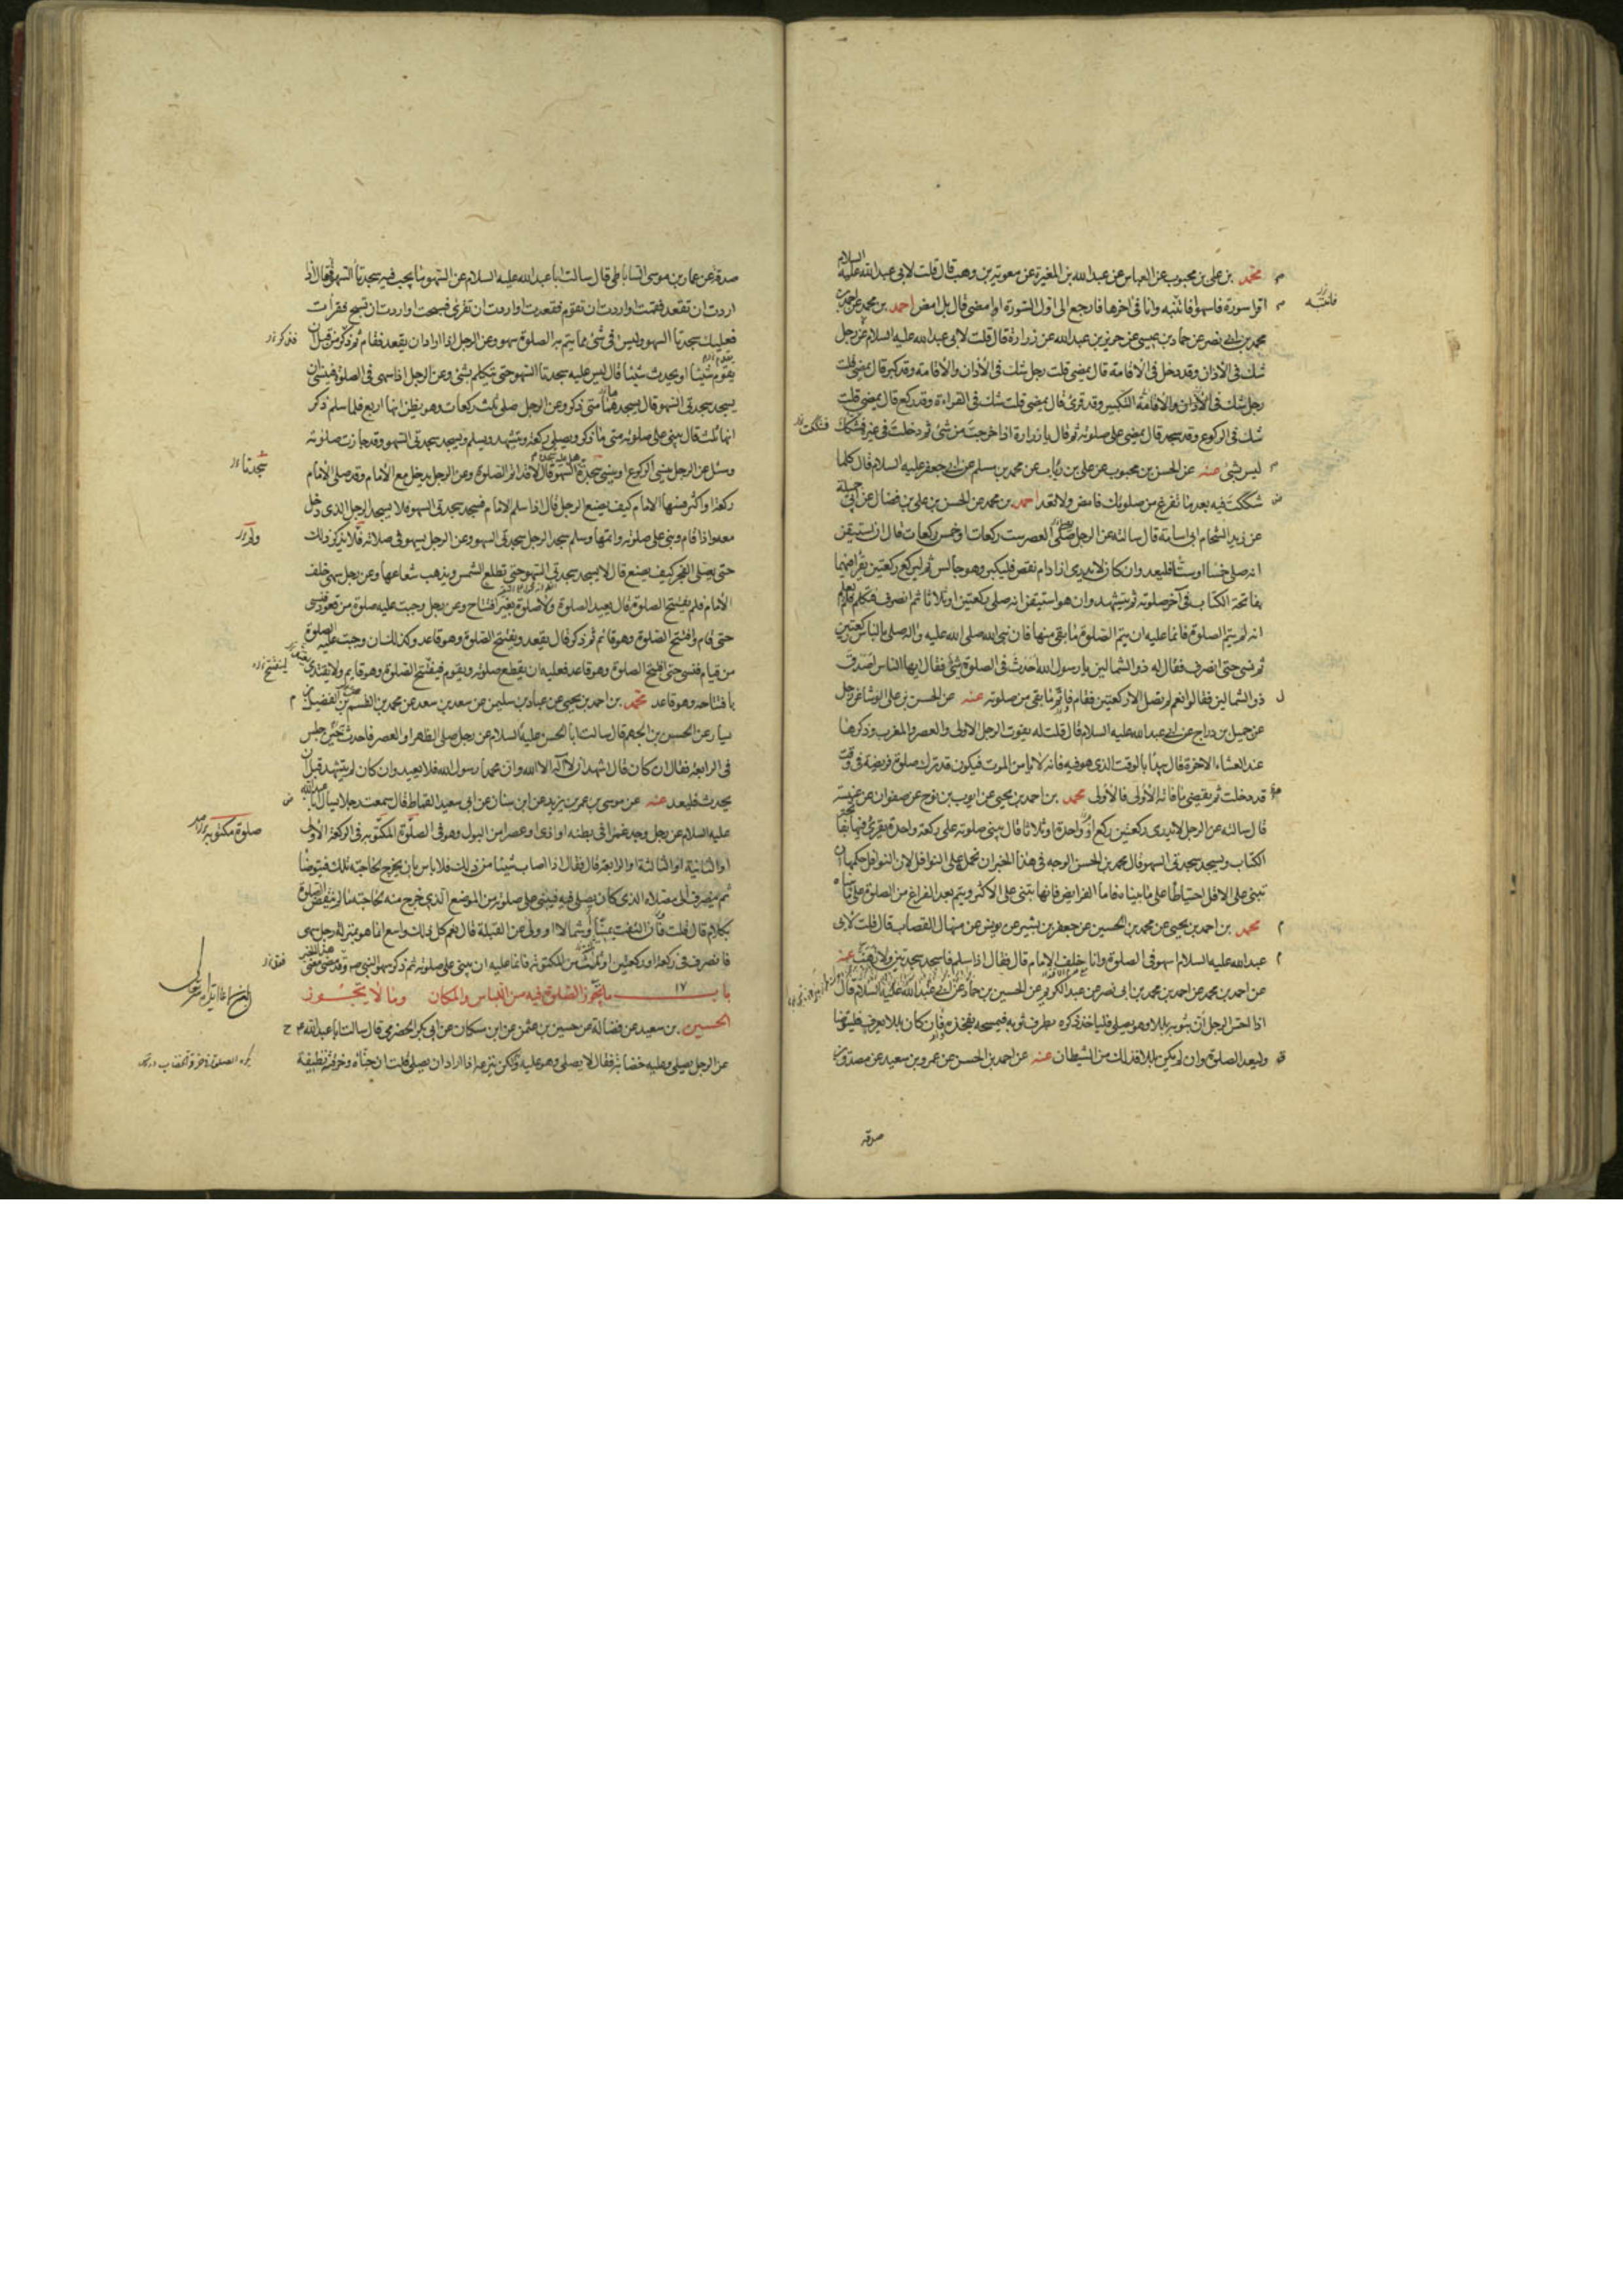 محمد بن علي بن محبوب عن العباس عن عبد الله بن المغيرة عن معوية بن وهب قال قلت لابي عبد الله عليه السلام
اقرا سورة فاسهو فانتبه وانا في اخرها فارجع الى اول السورة او امضي قال بل امض احمد بن محمد عن احمد بن
محمد بن ابي نصر عن حماد بن عيسى عن حريز بن عبد الله عن زرارة قال قلت لابي عبد الله عليه السلام عن رجل
شك في الأذان وقد دخل في الأقامة قال يمضي قلت رجل شك في الأذان والأقامة وقد كبر قال يمضي قلت
رجل شك في الأذان والاقامة التكبير وقد قرئ قال يمضي قلت شك في القراءة وقد ركع قال يمضي قلت
شك في الركوع وقد سجد قال يمضي على صلوته ثم قال يا زرارة اذا خرجت من شئ ثم دخلت في غيره فشكك
ليس بشئ عنه عن الحسن بن محبوب عن علي بن رئاب عن محمد بن مسلم عن ابي جعفر عليه السلام قال كلما
شككت فيه بعد ما تفرغ من صلوتك فامض ولا تعد احمد بن محمد عن الحسن بن علي بن فضال عن ابي جميلة
عن زيد الشحام ابي اسامة قال سالته عن الرجل صلى العصر ست ركعات او خمس ركعات قال ان استيقن
انه صلى خمسا او ستا فليعد وان كان لا يدري ازاد ام نقص فليكبر وهو جالس ثم ليركع ركعتين يقرا فيهما
بفاتحة الكتاب في آخر صلوته ثم يتشهد وان هو استيقن انه صلى ركعتين او ثلاثا ثم انصرف فتكلم فلم يعلم
انه لم يتم الصلوة فانما عليه ان يتم الصلوة ما بقي منها فان نبي الله صلى الله عليه واله صلى بالناس ركعتين
ثم نسي حتى انصرف فقال له ذو الشمالين يا رسول الله احدث في الصلوة شئ فقال ايها الناس اصدق
ذو الشمالين فقالوا نعم لم تصل الا ركعتين فقام فاتم ما بقي من صلوته عنه عن الحسن بن علي الوشا عن رجل
عن جميل بن دراج عن ابي عبد الله عليه السلام قال قلت له يفوت الرجل الاولى والعصر والمغرب وذكرها
عند العشاء الاخرة قال يبدأ بالوقت الذي هو فيه فانه لا يامن الموت فيكون قد ترك صلوة فريضة في وقت
قد دخلت ثم يقضي ما فاته الأولى فالأولى محمد بن احمد بن يحيى عن ايوب بن نوح عن صفوان عن عنبسة
قال سالته عن الرجل لا يدري ركعتين ركع او واحدة او ثلاثا قال يبني صلوته على ركعة واحدة يقرئ فيها بفاتحة
الكتاب ويسجد سجدتي السهو قال محمد بن الحسن الوجه في هذا الخبر ان نحمله على النوافل لان النوافل حكمها ان
تبنى على الاقل احتياطا على ما بيناه فاما الفرايض فانها تبنى على الاكثر ويتم بعد الفراغ من الصلوة على ما بيناه
محمد بن احمد بن يحيى عن محمد بن الحسين عن جعفر بن بشير عن يونس عن منهال القصاب قال قلت لابي
عبد الله عليه السلام اسهو في الصلوة وانا خلف الامام قال فقال اذا سلم فاسجد سجدتين ولا تهب عنه
عن احمد بن محمد عن احمد بن محمد بن ابي نصر عن عبد الكريم عن الحسين بن حماد عن ابي عبد الله عليه السلام قال
اذا احس الرجل ان بثوبه بللا وهو يصلي فلياخذ ذكره بطرف ثوبه فيمسحه بفخذه فان كان بللا يعرف فليتوضا
وليعد الصلوة وان لم يكن بللا فذلك من الشيطان عنه عن احمد بن الحسن عن عمرو بن سعيد عن مصدق بن
صدقة
صدقة عن عمار بن موسى الساباطي قال سالت ابا عبد الله عليه السلام عن السهو ما يجب فيه سجدتا السهو فقال اذا
اردت ان تقعد فقمت واردت ان تقوم فقعدت واردت ان تقرئ فسبحت واردت ان تسبح فقرأت
فعليك سجدتا السهو وليس في شئ مما يتم به الصلوة سهو وعن الرجل اذا اراد ان يقعد فقام ثم ذكر من قبل ان
يقوم شيئا او يحدث شيئا قال ليس عليه سجدتا السهو حتى يتكلم بشئ وعن الرجل اذا سهى في الصلوة فينسى ان
يسجد سجدتي السهو قال يسجدهما متى ذكر وعن الرجل صلى ثلث ركعات وهو يظن انها اربع فلما سلم ذكر
انها ثلث قال يبني على صلوته متى ما ذكر ويصلي ركعة ويتشهد ويسلم ويسجد سجدتي السهو وقد جازت صلوته
وسئل عن الرجل ينسى الركوع او ينسى سجدة هل عليه سجدتا السهو قال لا قد اتم الصلوة وعن الرجل يدخل مع الأمام وقد صلى الأمام
ركعة او اكثر فسها الامام كيف يصنع الرجل قال اذا سلم الامام فسجد سجدتي السهو فلا يسجد الرجل الذي دخل
معه واذا قام وبنى على صلوته واتمها وسلم سجد الرجل سجدتي السهو وعن الرجل يسهو في صلاته فلا يذكر ذلك
حتى يصلي الفجر كيف يصنع قال لا يسجد سجدتي السهو حتى تطلع الشمس ويذهب شعاعها وعن رجل سهى خلف
الأمام فلم يفتتح الصلوة قال يعيد الصلوة ولا صلوة بغير افتتاح وعن رجل وجبت عليه صلوة من قعود فنسي
حتى قام وافتتح الصلوة وهو قائم ثم ذكر قال يقعد ويفتتح الصلوة وهو قاعد وكذلك ان وجبت عليه الصلوة
من قيام فنسي حتى افتتح الصلوة وهو قاعد فعليه ان يقطع صلوته ويقوم فيفتتح الصلوة وهو قايم ولا يقتدي
بافتتاحه وهو قاعد محمد بن احمد بن يحيى عن عباد بن سليمن عن سعد بن سعد عن محمد بن القسم بن الفضيل بن
يسار عن الحسن بن الجهم قال سالت ابا الحسن عليه السلام عن رجل صلى الظهر او العصر فاحدث حين جلس
في الرابعة فقال ان كان قال اشهد ان لا اله الا الله وان محمدا رسول الله فلا يعيد وان كان لم يتشهد قبل ان
يحدث فليعد عنه عن موسى بن عمر بن يزيد عن ابن سنان عن ابي سعيد القماط قال سمعت رجلا يسال ابا عبد الله
عليه السلام عن رجل وجد غمزا في بطنه او اذى او عصرا من البول وهو في الصلوة المكتوبة في الركعة الأولى
او الثانية او الثالثة او الرابعة قال فقال اذا اصاب شيئا من ذلك فلا باس بان يخرج لحاجته تلك فيتوضا
ثم ينصرف الى مصلاه الذي كان يصلي فيه فيبني على صلوته من الموضع الذي خرج منه لحاجته ما لم ينقض الصلوة
بكلام قال قلت فان التفت يمينا او شمالا او ولى عن القبلة قال نعم كل ذلك واسع انما هو بمنزلة رجل سهى
فانصرف في ركعة او ركعتين او ثلث من المكتوبة فانما عليه ان يبني على صلوته ثم ذكر سهو النبي
باب ١٧ ما يجوز الصلوة فيه من اللباس والمكان وما لا يجوز
الحسين بن سعيد عن فضالة عن حسين بن عثمن عن ابن مسكان عن ابي بكر الحضرمي قال سالت ابا عبد الله ع
عن الرجل يصلي وعليه خضابه فقال لا يصلي وهو عليه ولكن ينزعه اذا اراد ان يصلي قلت ان حناه وخرقته نظيفة